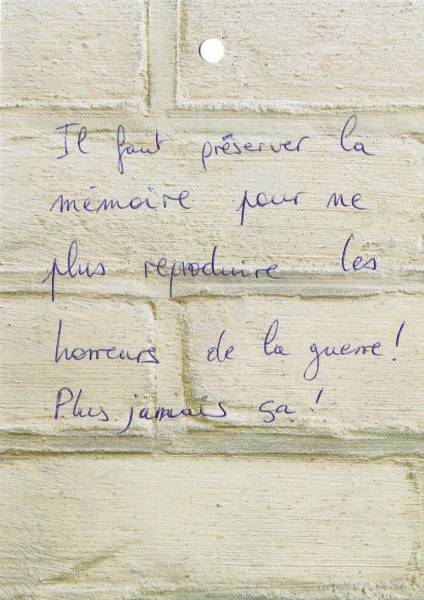 Il faut préserver la
mémoire pour ne
plus reproduire les
horreurs de la guerre!
Plus jamais ça!